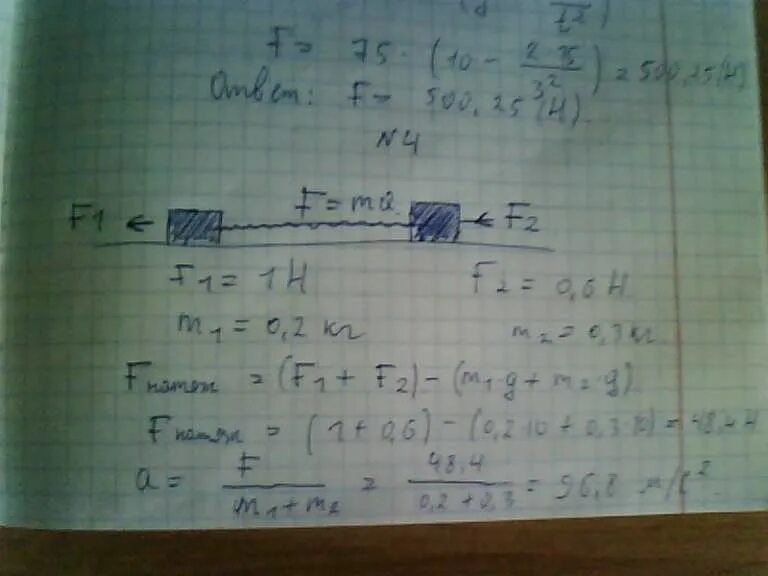 F = 75 · (10 - 2·15 / 3²) = 500,25 (Н)
Ответ: F = 500,25 (Н).
N4
F1 ← F = ma ← F2
F1 = 1 Н F2 = 0,6 Н
m1 = 0,2 кг m2 = 0,3 кг
Fнатяж = (F1 + F2) - (m1·g + m2·g)
Fнатяж = (1 + 0,6) - (0,2·10 + 0,3·10) = 48,4 Н
a = F / m1 + m2 = 48,4 / 0,2 + 0,3 = 96,8 м/с²